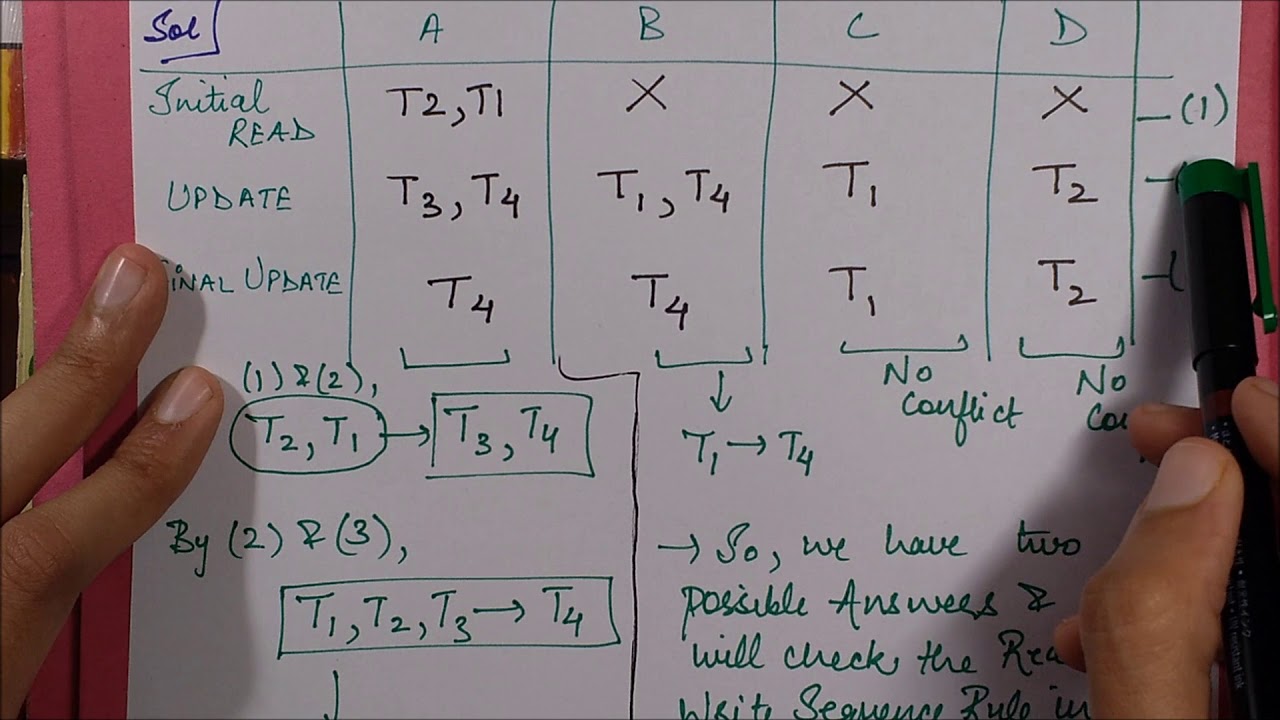 Sol A B C D
Initial READ T2, T1 X X X — (1)
UPDATE T3, T4 T1, T4 T1 T2
FINAL UPDATE T4 T4 T1 T2
(1) & (2),
T2, T1 → T3, T4
By (2) & (3),
T1, T2, T3 → T4
↓
T1 → T4
No Conflict
No
→ So, we have two
possible Answers &
will check the
Write Sequence Rule in